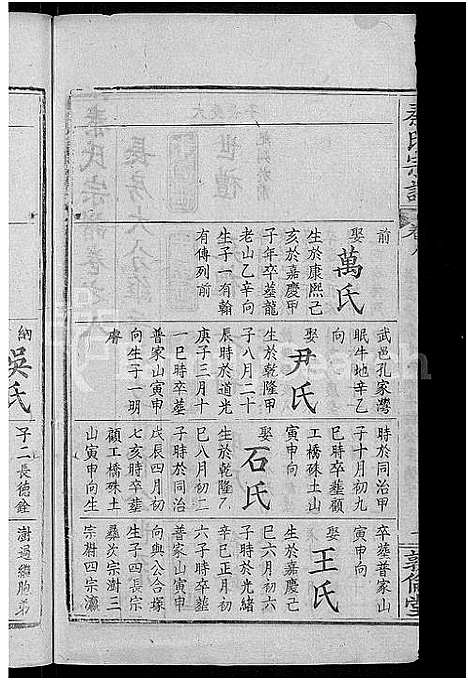 秦氏宗譜
卷八
前
娶萬氏
生於康熙己
亥於嘉慶甲
子年卒墓龍
老山乙辛向
生子一有翰
有傳列前
武邑孔家灣
眠牛地辛乙
向
娶尹氏
生於乾隆甲
子八月二十
辰時於道光
庚子三月十
一巳時卒墓
普家山寅申
向生子一明
睿
時於同治甲
子十月初九
巳時卒墓顧
工橋硃土山
寅申向
娶石氏
生於乾隆乙
巳八月初二
子時於同治
戊辰四月初
七亥時卒墓
顧工橋硃土
山寅申向生
卒墓普家山
寅申向
娶王氏
生於嘉慶乙
巳六月初六
子時於光緒
辛巳正月初
六子時卒墓
普家山寅申
向與公合塚
生子四長宗
彝次宗澍三
宗嶄四宗瀛
敦倫堂
納吳氏
子二長德銓
澍過繼胞弟